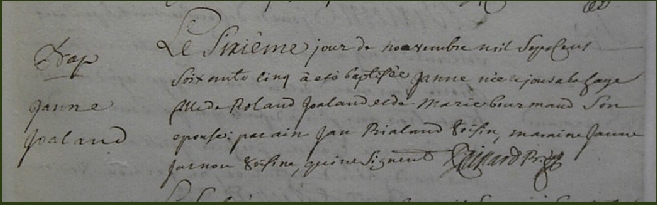 Bap
Janne
Joaland
Le Sixième jour de novembre mil Sept Cens
Soixante cinq à été baptisée Janne née ce jour a la
fille de Roland Joaland et de Marie Son
epouse; parain Jan Rialand voisin, maraine Janne
voisine, qui ne Signent